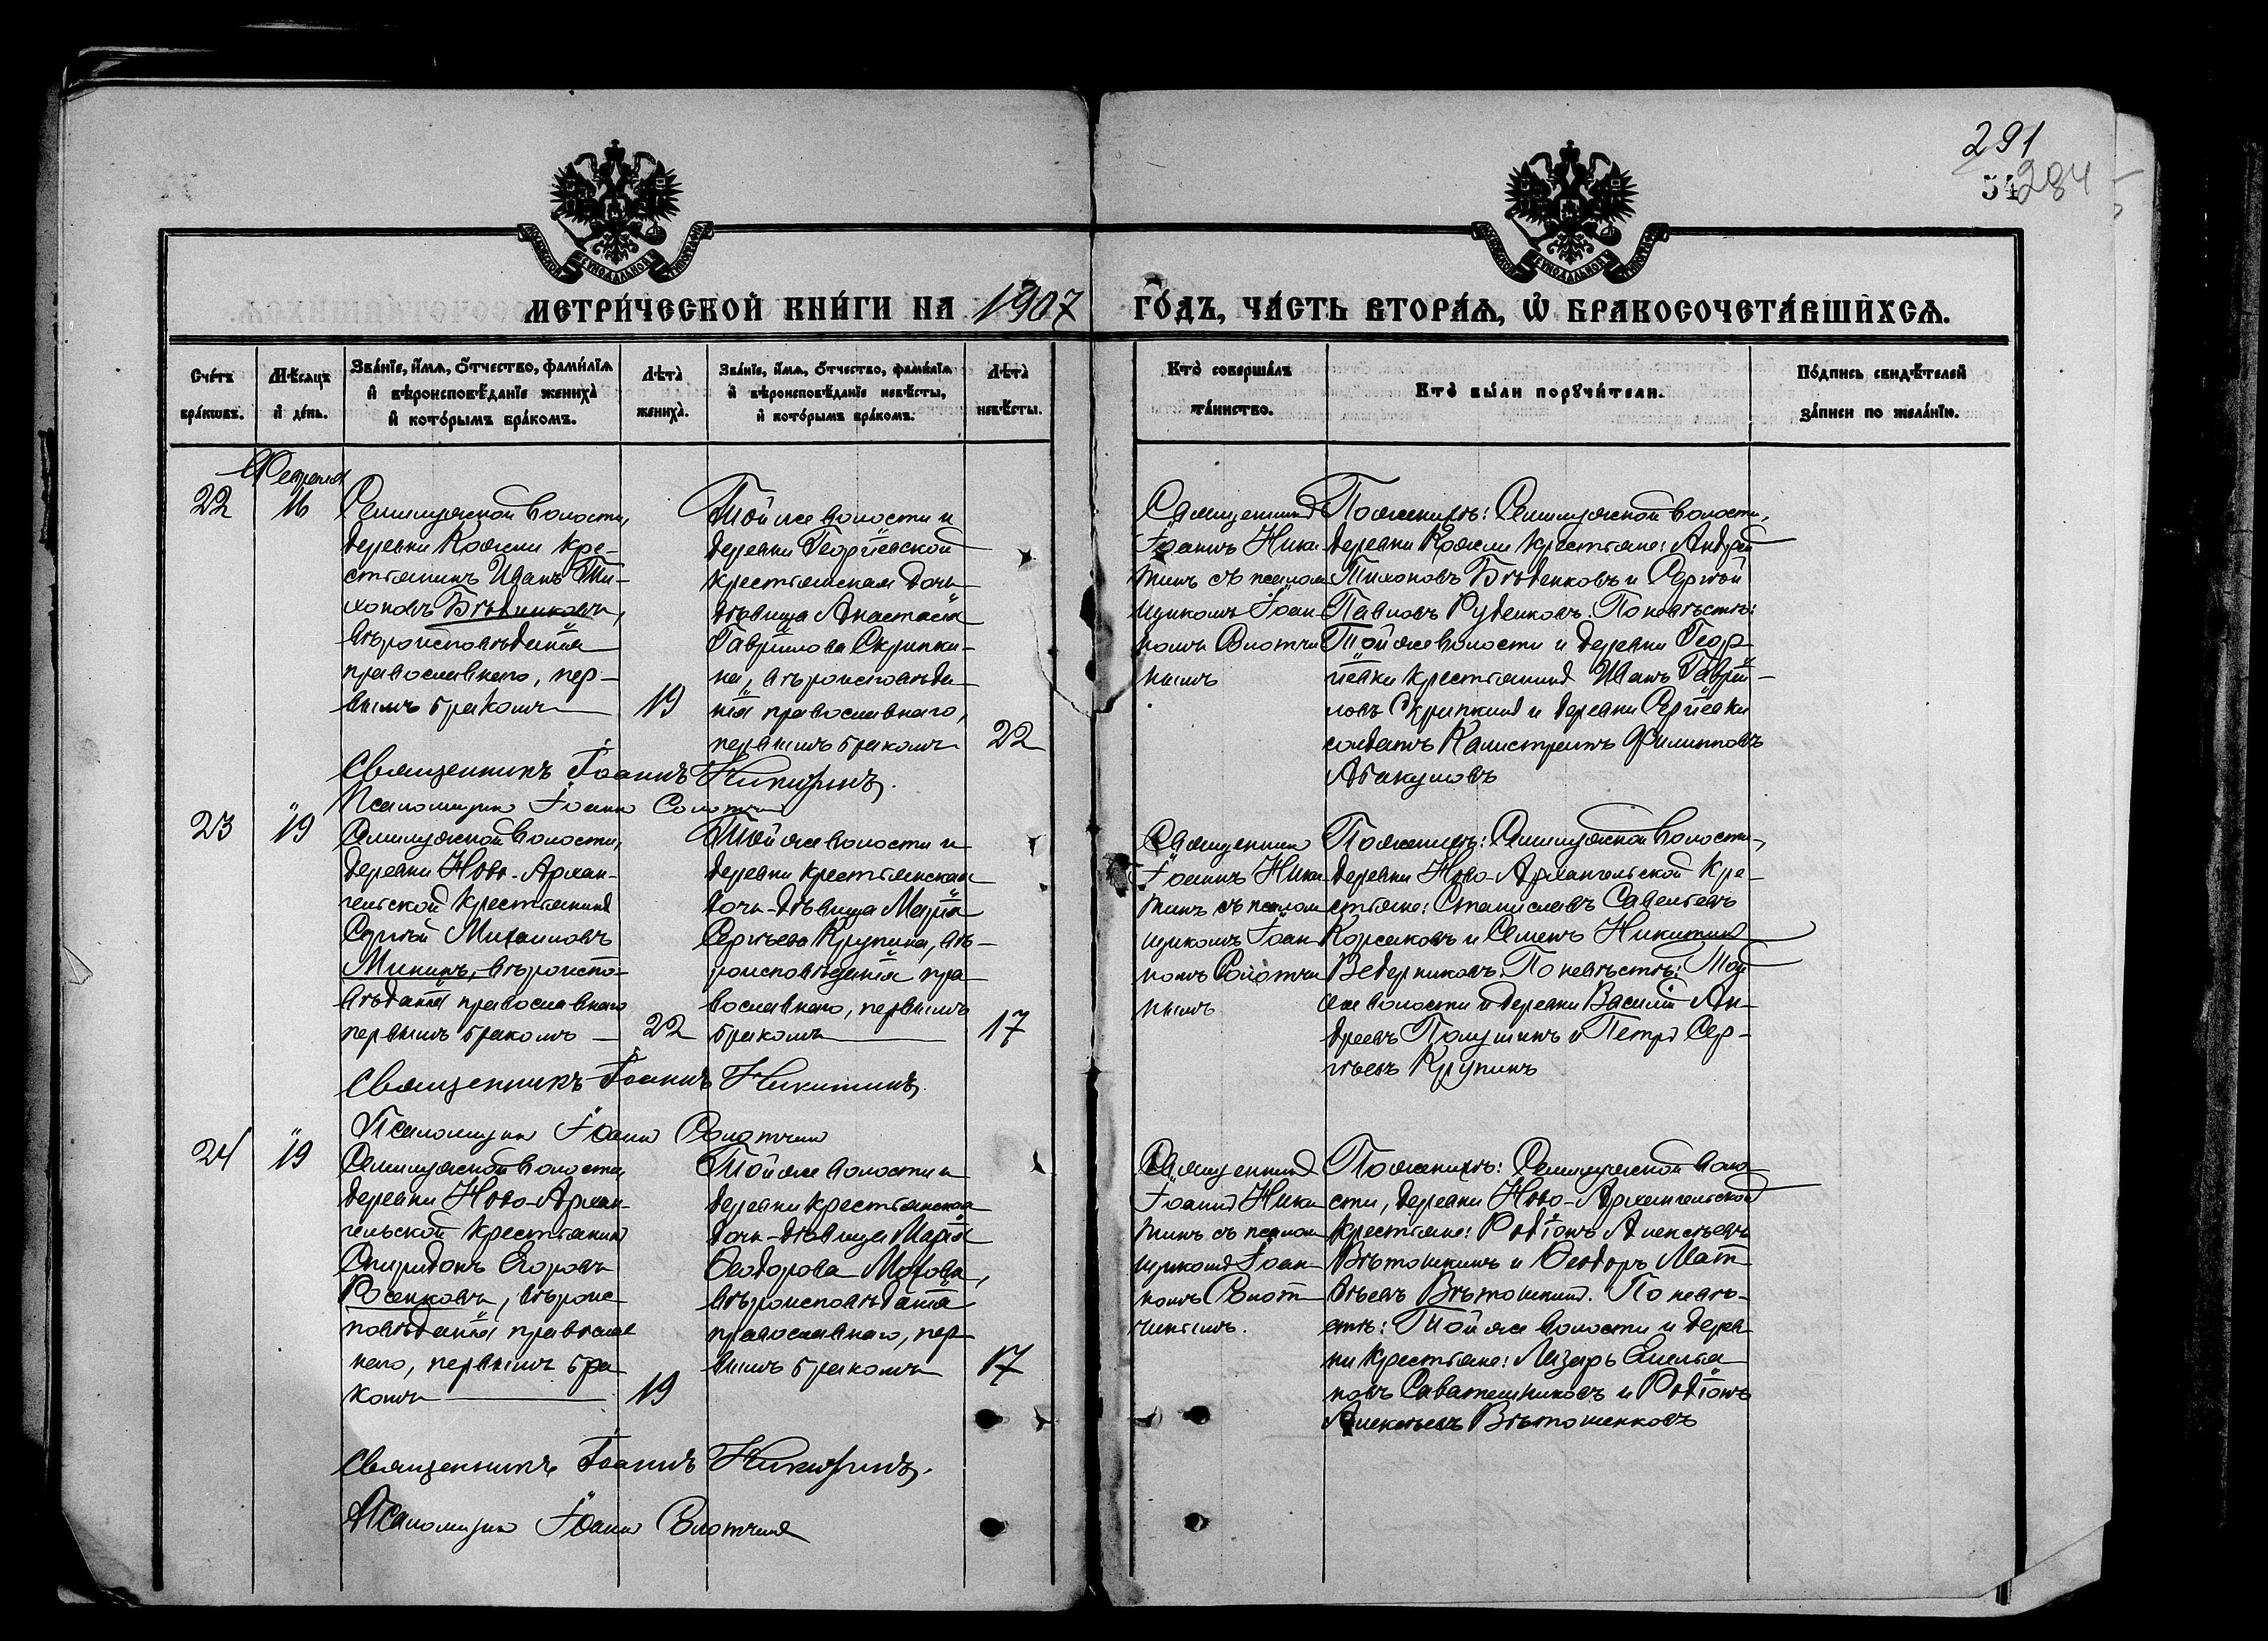 291
54 284
МЕТРИ́ЧЕСКОЙ КНИ́ГИ НА 1907 ГО́ДЪ, ЧА́СТЬ ВТОРА́Я, Ѡ БРАКОСОЧЕТА́ВШИХСЯ.
Сче́тъ бра́кѡвъ.
Мѣ́сяцъ и҆ де́нь.
Зва́нїе, и҆́мя, ѻ҆́тчество, фами́лїя
и҆ вѣроисповѣ́данїе жениха̀
и҆ кото́рымъ бра́комъ.
Лѣта̀ жениха̀.
Зва́нїе, и҆́мя, ѻ҆́тчество, фами́лїя
и҆ вѣроисповѣ́данїе невѣ́сты,
и҆ кото́рымъ бра́комъ.
Лѣта̀ невѣ́сты.
Кто̀ соверша́лъ та́инство.
Кто̀ бы́ли порꙋчи́тели.
По́дпись свидѣ́телей за́писи по жела́нїю.
Февраля
22
16
Семилужской волости,
деревни Кожли кре-
стьянинъ Иванъ Ти-
хоновъ Бѣденковъ,
вѣроисповѣданія
православнаго, пер-
вымъ бракомъ
19
Той же волости и
деревни Георгіевской
крестьянская дочь
дѣвица Анастасія
Гавріилова Скрипки-
на, вѣроисповѣда-
нія православнаго,
первымъ бракомъ
22
Священникъ
Іоаннъ Ники
тинъ съ псалом
щикомъ Іоан
номъ Слотчи
нымъ
По женихѣ: Семилужской волости,
деревни Кожли крестьяне: Андрей
Тихоновъ Бѣденковъ и Сергѣй
Павловъ Руденковъ. По невѣстѣ:
Той же волости и деревни Геор
гіевки крестьянинъ Иванъ Гаврій-
ловъ Скрипкинъ и деревни Сергіевки
солдатъ Калистратъ Филипповъ
Абакумовъ
Священникъ Іоаннъ Никитинъ.
Псаломщикъ Іоаннъ Слотчинъ
23
19
Семилужской волости,
деревни Ново-Архан-
гельской крестьянинъ
Сергѣй Михаиловъ
Мининъ, вѣроиспо-
вѣданія православнаго
первымъ бракомъ
22
Той же волости и
деревни крестьянская
дочь-дѣвица Марія
Сергѣева Крупина, вѣ-
роисповѣданія пра
вославнаго, первымъ
бракомъ
17
Священникъ
Іоаннъ Ники
тинъ съ псалом
щикомъ Іоан
номъ Слотчи
нымъ
По женихѣ: Семилужской волости,
деревни Ново-Архангельской кре-
стьяне: Станиславъ Савельевъ
Корсаковъ и Семенъ Никитинъ
Ведерниковъ. По невѣстѣ: Той
же волости и деревни Василій Ан-
дреевъ Полушинъ и Петръ Сер-
гѣевъ Крупинъ
Священникъ Іоаннъ Никитинъ.
Псаломщикъ Іоаннъ Слотчинъ
24
19
Семилужской волости,
деревни Ново-Архан-
гельской крестьянинъ
Спиридонъ Егоровъ
Росенковъ, вѣроис
повѣданія православ
наго, первымъ бра
комъ
19
Той же волости и
деревни крестьянская
дочь-дѣвица Марія
Ѳеодорова Мохова,
вѣроисповѣданія
православнаго, пер-
вымъ бракомъ
17
Священникъ
Іоаннъ Ники
тинъ съ псалом
щикомъ Іоан
номъ Слот
чинымъ.
По женихѣ: Семилужской воло
сти, деревни Ново-Архангельской
крестьяне: Родіонъ Алексѣевъ
Вѣтошкинъ и Ѳеодоръ Мат
вѣевъ Вѣтошкинъ. По невѣ-
стѣ: Той же волости и дерев
ни крестьяне: Лазарь Емелья
новъ Саватешниковъ и Родіонъ
Алексѣевъ Вѣтошенковъ
Священникъ Іоаннъ Никитинъ.
Псаломщикъ Іоаннъ Слотчинъ